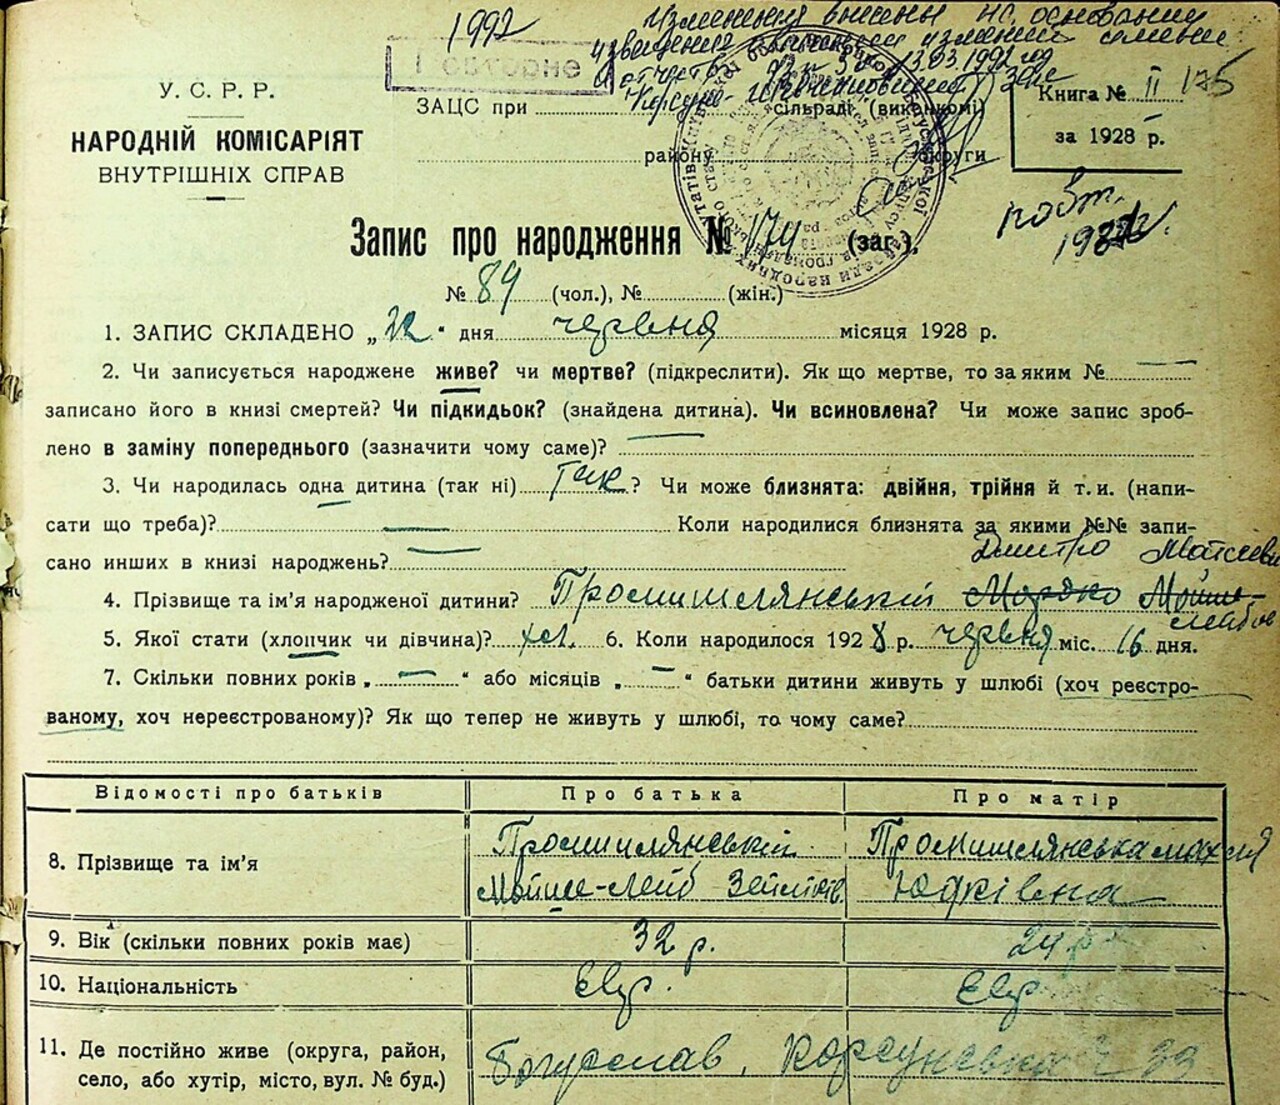 1992 Изменения внесены на основании
извещения о внесении изменений
и отчество 13.03.1992 год
Повторне
У. С. Р. Р.
НАРОДНІЙ КОМІСАРІЯТ
ВНУТРІШНІХ СПРАВ
ЗАЦС при сільраді (виконкомі)
району округи
Книга № II 175
за 1928 р.
повт.
Запис про народження № 174 (заг.),
№ 89 (чол.), № (жін.)
1. ЗАПИС СКЛАДЕНО „22“ дня червня місяця 1928 р.
2. Чи записується народжене живе? чи мертве? (підкреслити). Як що мертве, то за яким № —
записано його в книзі смертей? Чи підкидьок? (знайдена дитина). Чи всиновлена? Чи може запис зроб-
лено в заміну попереднього (зазначити чому саме)? —
3. Чи народилась одна дитина (так ні) так? Чи може близнята: двійня, трійня й т. и. (напи-
сати що треба)? — Коли народилися близнята за якими №№ запи-
сано инших в книзі народжень? —
Дмитро Мойсеєви
4. Прізвище та ім’я народженої дитини? Промишлянський Мордко Мойше-
лейбов
5. Якої стати (хлопчик чи дівчина)? хл. 6. Коли народилося 1928 р. червня міс. 16 дня.
7. Скільки повних років „—“ або місяців „—“ батьки дитини живуть у шлюбі (хоч реєстро-
ваному, хоч нереєстрованому)? Як що тепер не живуть у шлюбі, то чому саме?
Відомості про батьків Про батька Про матір
8. Прізвище та ім’я Промишлянський Промишлянська
Мойше-Лейб Юдківна
9. Вік (скільки повних років має) 32 р. 24 р.
10. Національність Євр. Євр.
11. Де постійно живе (округа, район,
село, або хутір, місто, вул. № буд.) Богуслав, Корсунська 33